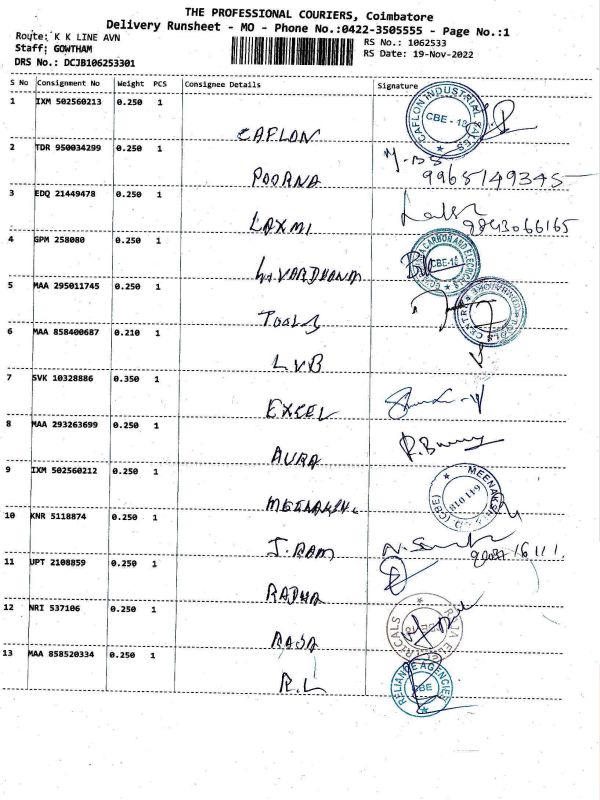 THE PROFESSIONAL COURIERS, Coimbatore
Delivery Runsheet - MO - Phone No.:0422-3505555 - Page No.:1
Route: K K LINE AVN
Staff: GOWTHAM
DRS No.: DCJB106253301
RS No.: 1062533
RS Date: 19-Nov-2022
S No Consignment No Weight PCS Consignee Details Signature
1 IXM 502560213 0.250 1
CAFLON
CAFLON INDUSTRIAL CBE - 18
2 TDR 950034299 0.250 1
POORNA
9965149345
3 EDQ 21449478 0.250 1
LAXMI
9843066165
4 GPM 258080 0.250 1
CARBON AND ELECTRICALS CBE-18
5 MAA 295011745 0.250 1
TOOLS
TOOLS CENTRE
6 MAA 858400687 0.210 1
LVB
7 SVK 10328886 0.350 1
EXCEL
8 MAA 293263699 0.250 1
AURA
9 IXM 502560212 0.250 1
MEENAKSHI (CBE) 641 018
10 KNR 5118874 0.250 1
J. RAM
11 UPT 2108859 0.250 1
RADHA
12 NRI 537106 0.250 1
RAJA
RAJA ELECTRICALS
13 MAA 858520334 0.250 1
R.L
RELIANCE AGENCIES CBE